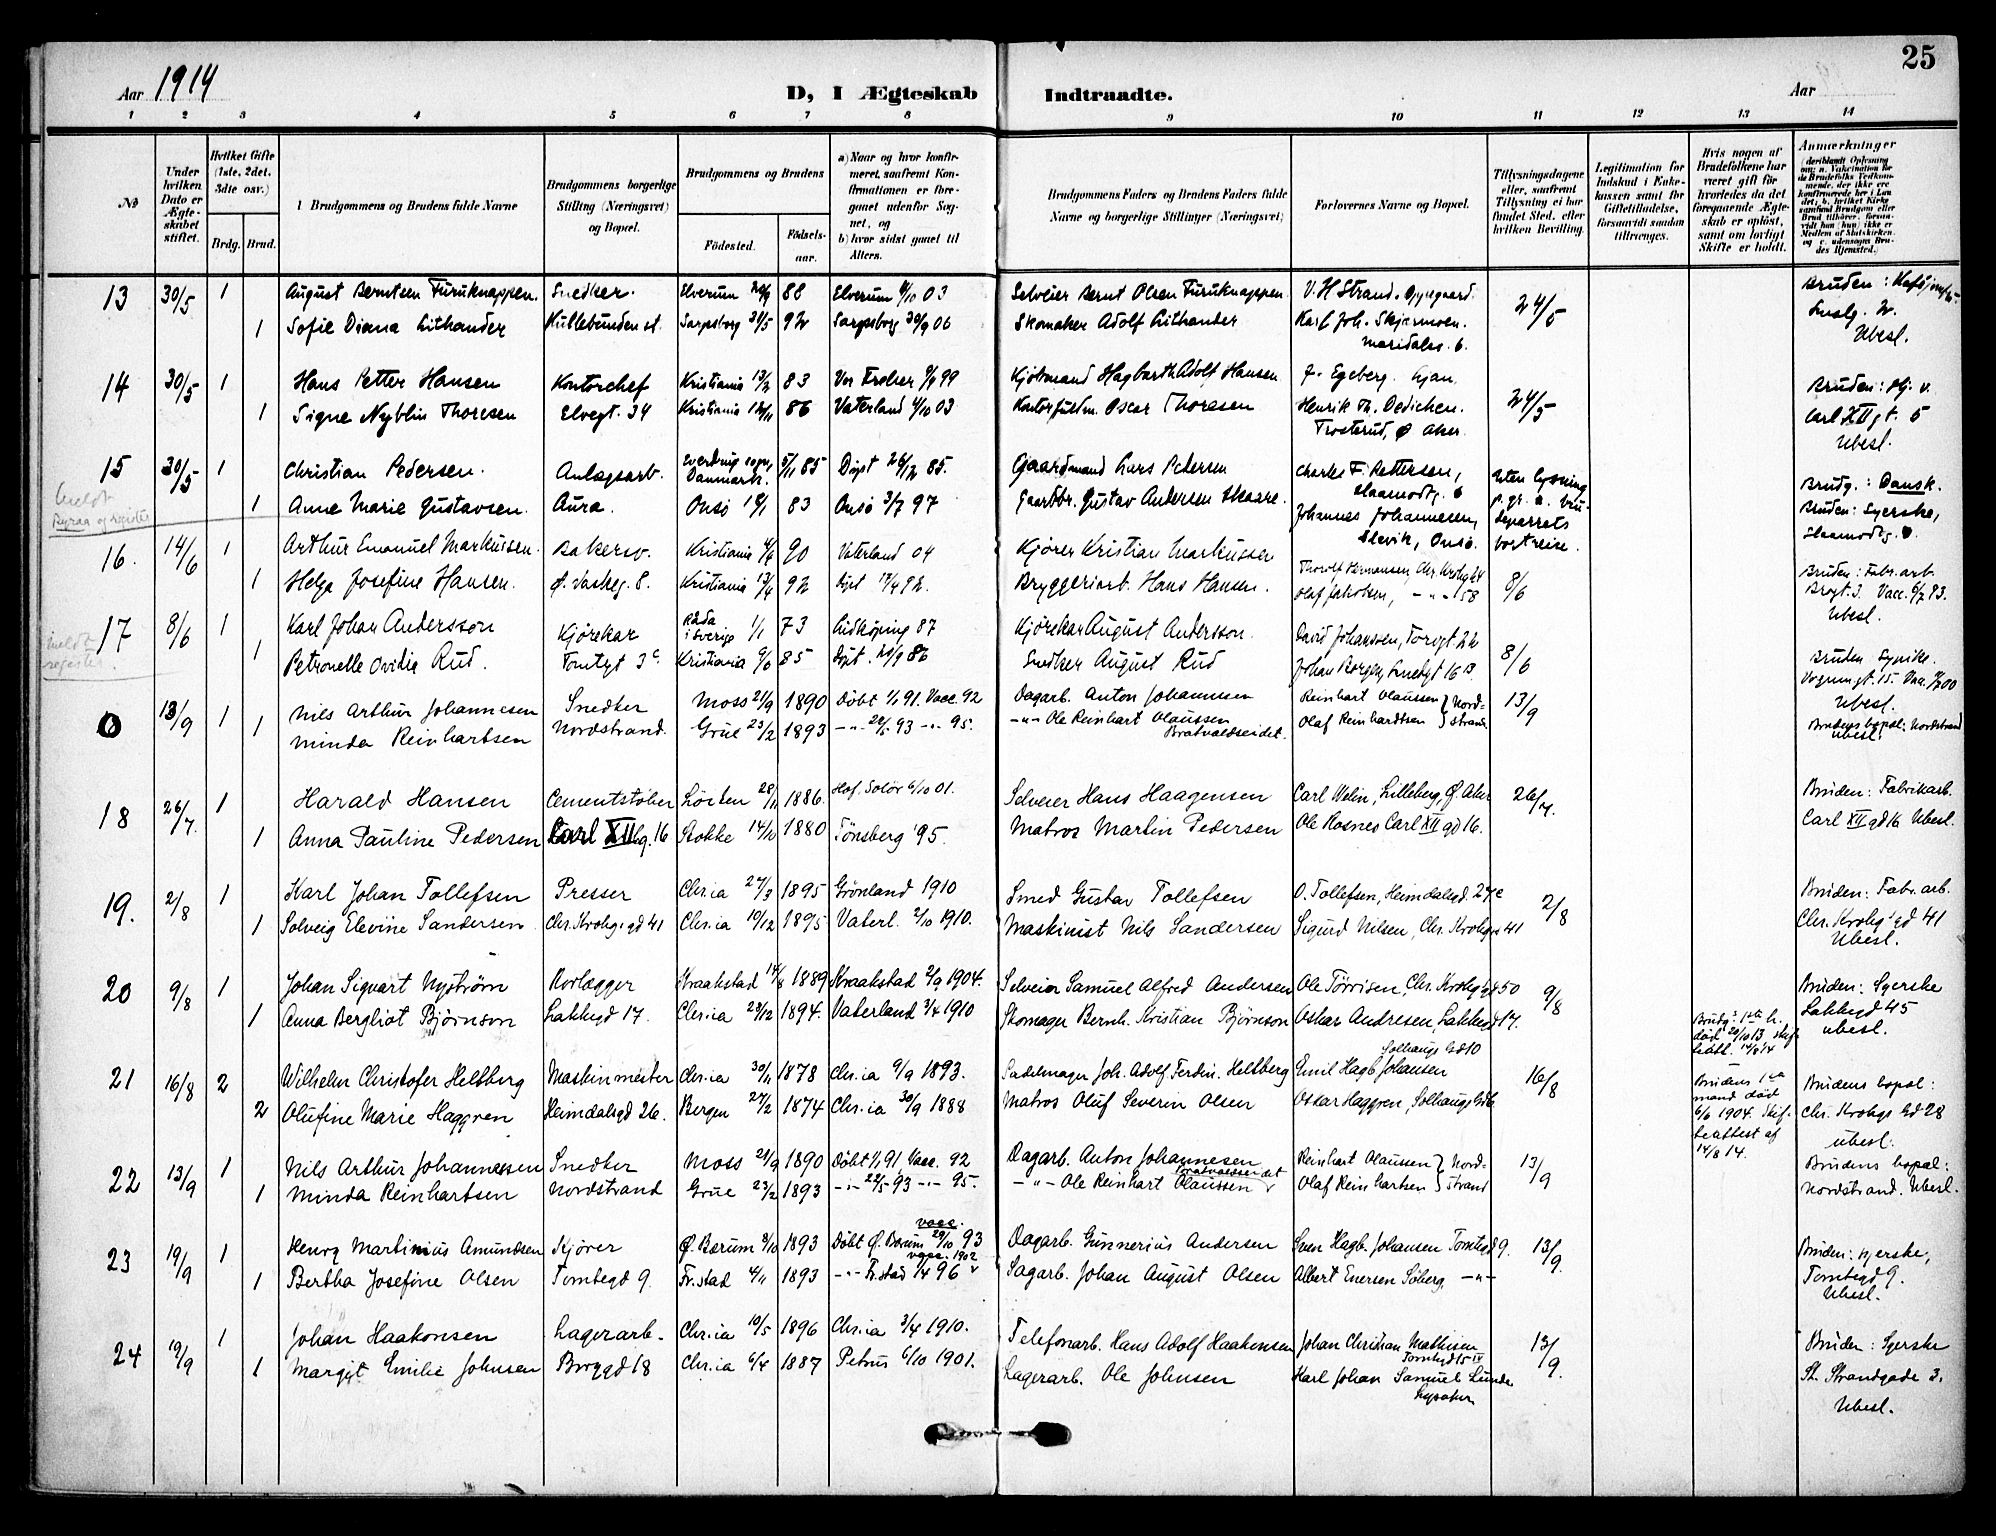 25
Aar 1914
D, I Ægteskab Indtraadte.
Aar
1 2 3 4 5 6 7 8 9 10 11 12 13 14
No
Under hvilken Dato er Ægteskabet stiftet.
Hvilket Gifte (1ste, 2det, 3dte osv.)
Brdg. Brud.
Brudgommens og Brudens fulde Navne
Brudgommens borgerlige Stilling (Næringsvei) og Bopæl.
Brudgommens og Brudens
Fødested. Fødselsaar.
a) Naar og hvor konfirmeret, saafremt Konfirmationen er foregaaet udenfor Sognet, og
b) hvor sidst gaaet til Alters.
Brudgommens Faders og Brudens Faders fulde Navne og borgerlige Stillinger (Næringsvei)
Forlovernes Navne og Bopæl.
Tillysningsdagene eller, saafremt Tillysning ei har fundet Sted, efter hvilken Bevilling.
Legitimation for Indskud i Enkekassen samt for Giftetilladelse, forsaavidt saadan tiltrænges.
Hvis nogen af Brudefolkene har været gift før hvorledes da det foregaaende Ægteskab er opløst, samt om lovligt Skifte er holdt.
Anmærkninger
13 30/5 1 August Berntsen Furuknappen. Snedker. Elverum 88 Elverum 03 Selveier Bernt Olsen Furuknappen. V. H Strand. Oppegaard. 24/5 Bruden:
1 Sofie Diana Lithander Sarpsborg 31/5 92 Sarpsborg 30/9 06 Skomaker Adolf Lithander Karl Joh. Skjærmoen. Maridalsv. 6. Ubesl.
14 30/5 1 Hans Petter Hansen Kontorchef Kristiania 83 Vor Frelser 99 Kjøbmand Hagbarth Adolf Hansen F. Egeberg. Ljan. 24/5 Bruden: Hj. v.
1 Signe Nyblin Thoresen Elvegt. 34 Kristiania 86 Vaterland 4/10 03 Kontorfuldm. Oscar Thoresen Henrik Th. Dedichen. Trosterud, Ø Aker. Carl XII gt. 5 Ubesl.
15 30/5 1 Christian Pedersen. Anlægsarb. Danmark. 5/11 85 Døpt 26/12 85. Gaardmand Lars Pedersen Charles F. Pettersen, Uten lysning Brudg.: Dansk.
1 Anne Marie Gustavsen. Aura. Onsø 18/1 83 Onsø 3/7 97 Gaardbr. Gustav Andersen Skaare. Johannes Johannesen, Slevik, Onsø. p. gr. a. brudeparrets bortreise. Bruden: Syerske,
16. 14/6 1 Arthur Emanuel Markussen. Bakersv. Kristiania 90 Vaterland 04 Kjører Kristian Markussen Thorolf Hermansen, Chr. Krohg. 24 8/6 Bruden: Fabr. arb.
1 Helga Josefine Hansen. Ø. Vaskeg. 8. Kristiania 13/4 92 Døpt 92. Bryggeriarb. Hans Hansen. Olaf Jakobsen, -"- 58 Vacc. 93. Ubesl.
17 8/6 1 Karl Johan Andersson Kjørekar Råda i Sverige 1/1 73 Lidköping 87 Kjørekar August Andersson. David Johansen, Torvgt. 22 8/6
1 Petronelle Ovidia Rud. Tomtgt 3c Kristiania 85 Døpt. 86 Snedker August Rud Johan Borgen, 16 B. Bruden Sypike. 15 Vacc. Ubesl.
13/9 1 Nils Arthur Johannesen Snedker Moss 21/9 1890 Døbt 1/1 91. Vacc. 92 Dagarb. Anton Johannesen Reinhart Olaussen Nordstrand 13/9
1 Minda Reinhartsen Nordstrand. Grue 23/2 1893 -"- 22/5 93 -"- 95. -"- Ole Reinhart Olaussen Bratvoldseidet. Olaf Reinhardtsen Brudens bopæl: Nordstrand Ubesl.
18 26/7. 1 Harald Hansen Cementstøber Løiten 28/11 1886. Hof. Solør 6/10 01. Selveier Hans Haagensen Carl Welin, Lilleberg, Ø. Aker 26/7. Bruden: Fabrikarb.
1 Anna Pauline Pedersen Carl XII g. 16 Stokke 14/10 1880 Tønsberg '95. Matros Martin Pedersen Ole Rosnes Carl XII gd 16. Carl XII gd 16 Ubesl.
19. 2/8 1 Karl Johan Tollefsen Presser Chr.ia 27/3 1895 Grønland 1910 Smed Gustav Tollefsen O. Tollefsen, Heimdalsgd. 27c 2/8 Bruden: Fabr. arb.
1 Solveig Elevine Sandersen. Chr. Krohgs gd 41 Chr.ia 10/12 1895 Vaterl. 2/10 1910. Maskinist Nils Sandersen Sigurd Nilsen, Chr. Krohgs 41 Chr. Krohgs gd 41 Ubesl.
20 9/8 1 Johan Sigvart Nystrøm Rørlægger Kraakstad 14/8 1889 Kraakstad 2/9 1904. Selveier Samuel Alfred Andersen Ole Tørrisen, Chr. Krohgs gd 50 9/8 Bruden: Syerske
1 Anna Bergliot Bjørnson Lakkegd 17. Chr.ia 23/12 1894. Vaterland 3/4 1910 Skomager Bernh. Kristian Bjørnson Oskar Andresen, Lakkegd 17. Lakkegd 45 ubesl.
21 16/8 2 Wilhelm Christofer Heltberg Maskinmester Chr.ia 30/11 1878 Chr.ia 9/9 1893. Sadelmager Joh. Adolf Ferdin. Heltberg Emil Hagb. Johansen Solhaugs gd 10 16/8 Brudg.s 1ste h. død 20/10 13, skifteatt. 14/8 14
2 Olufine Marie Haggren Heimdalsgd 26. Bergen 27/2 1874 Chr.ia 30/9 1888 Matros Oluf Severin Olsen Oskar Haggren, Solhaugs gd Brudens 1ste mand død 6/6 1904. Skifteattest af 14/8 14. Brudens bopæl: Chr. Krohgs gd 28 ubesl.
22 13/9 1 Nils Arthur Johannessen Snedker Moss 21/9 1890 Døbt 1/1 91, Vacc. 92 Dagarb. Anton Johannesen Reinhart Olaussen Nordstrand 13/9 Brudens bopæl:
1 Minda Reinhartsen Nordstrand Grue 23/2 1893 -"- 22/5 93 -"- 95. -"- Ole Reinhart Olaussen Bratvoldseidet Olaf Reinhartsen Nordstrand. Ubesl.
23 19/9 1 Henry Martinius Amundsen Kjører Ø. Bærum 3/10 1893 Døbt Ø. Bærum 29/10 93 vacc. Dagarb. Gunnerius Andersen Sven Hagb. Johansen Tomtegd 9. 13/9. Bruden: syerske,
1 Bertha Josefine Olsen Tomtegd 9. Fr.stad 4/11 1893 -"- Fr.stad 96 vacc. 1902 Sagarb. Johan August Olsen Albert Enersen Søberg, -"- Tomtegd 9. Ubesl.
24 19/9 1 Johan Haakonsen Lagerarb. Chr.ia 10/5 1896 Chr.ia 3/4 1910. Telefonarb. Hans Adolf Haakonsen Johan Christian Mathisen Tomtegd 15 IV 13/9. Bruden: Syerske
1 Margit Emilie Johnsen Bryggd 18 Chr.ia 6/4 1887 Petrus 6/10 1901. Lagerarb. Ole Johnsen Karl Johan Samuel Lunde St. Strandgade 3. Ubesl.